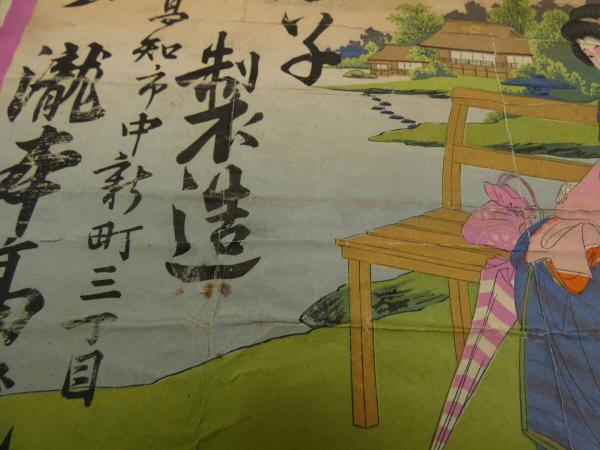 子
製造
高知市中新町三丁目
瀧本高